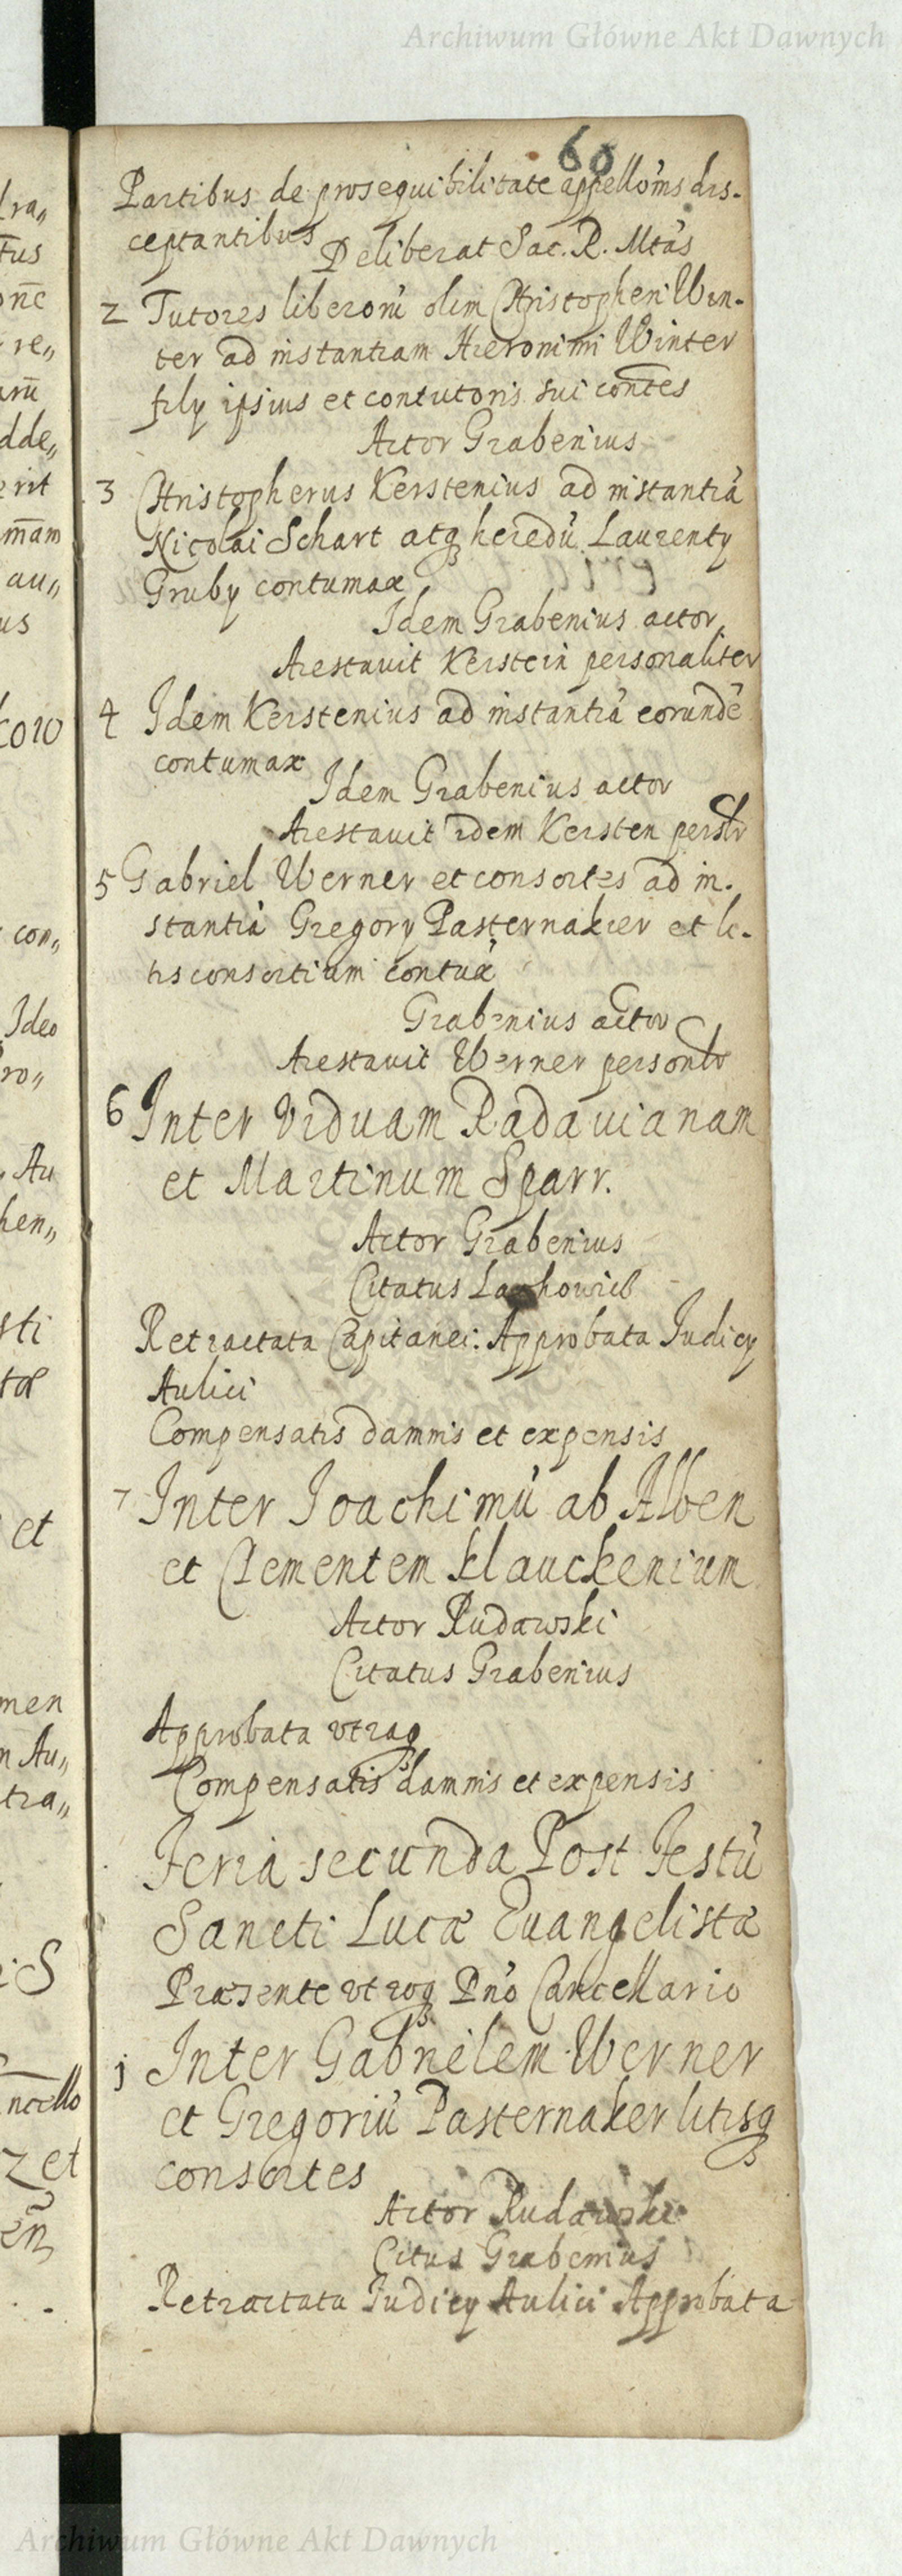 Archiwum Główne Akt Dawnych
60
Partibus de prosequibilitate appello͂nis dis-
ceptantibus
Deliberat Sac. R. Mtas
2 Tutores liberorũ olim Christopheri Win-
ter ad instantiam Hieronimi Winter
filij ipsius et contutoris sui con͂tes
Actor Grabenius
3 Christopherus Kerstenius ad instantiã
Nicolai Schart atq heredũ Laurentij
Gruby contumax
Idem Grabenius actor
Arestauit Kerstein personaliter
4 Idem Kerstenius ad instantiã eorundẽ
contumax
Idem Grabenius actor
Arestauit idem Kersten persłr
5 Gabriel Werner et consortes ad in-
stantiã Gregorij Pasternakier et li-
tis consortium contũax
Grabenius actor
Arestauit Werner personlr
6 Inter Viduam Radauianam
et Martinum Sparr.
Actor Grabenius
Citatus
Retractata Capitanei: Approbata Judicij
Aulici
Compensatis damnis et expensis
7 Inter Joachimũ ab Alben
et Clementem Klauckenium
Actor Rudawski
Citatus Grabenius
Approbata vtraq
Compensatis damnis et expensis
Feria secunda Post Festũ
Sancti Lucæ Euangelistæ
Præsente vtroq Dño Cancellario
j Inter Gabrielem Werner
et Gregoriũ Pasternaker litisq
consortes
Actor Rudawski
Citus Grabenius
Retractata Judicij Aulici Approbata
Archiwum Główne Akt Dawnych